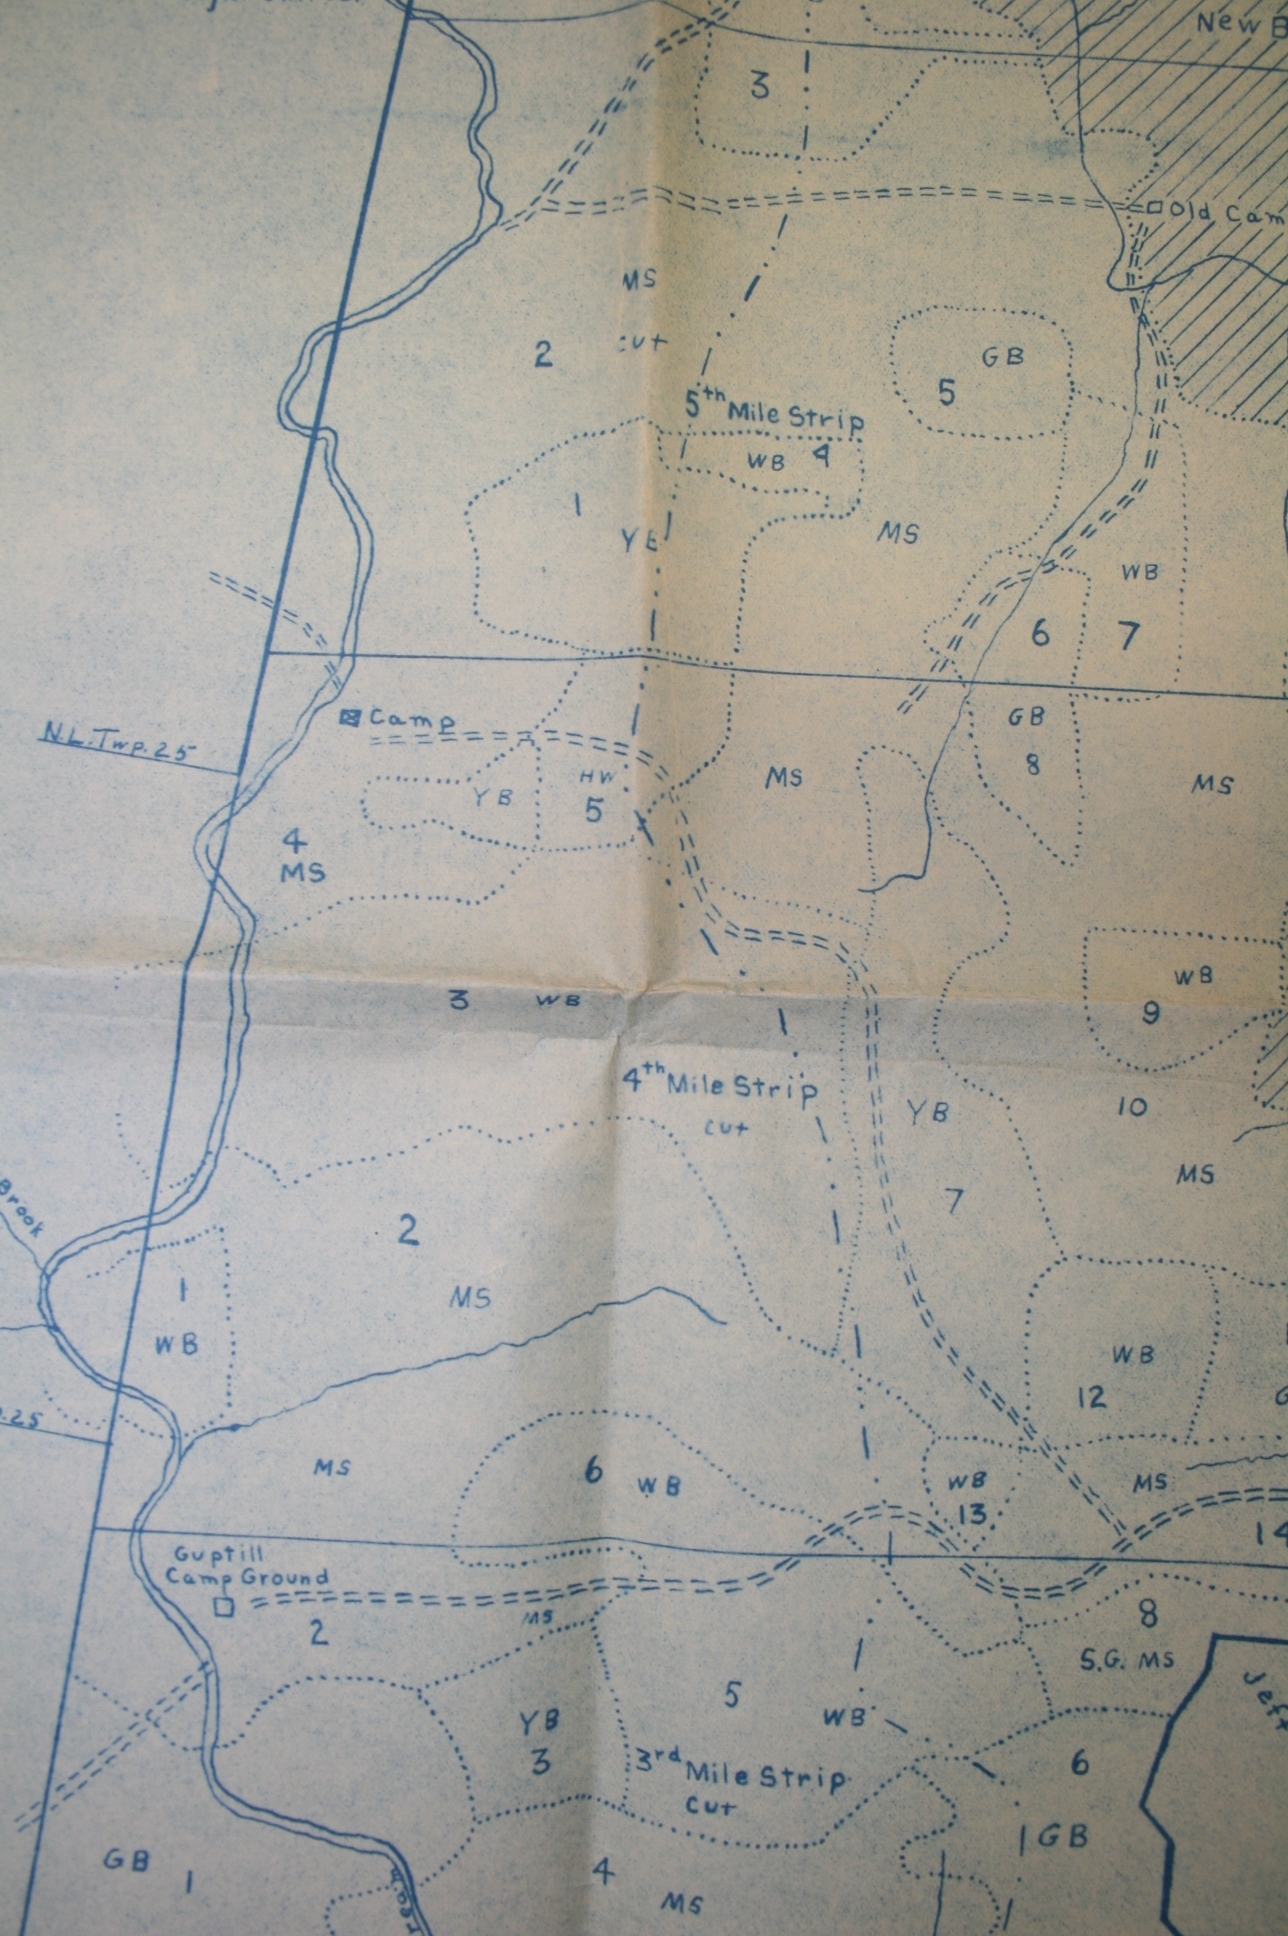 New B
3
Old Cam
MS
cut
2
GB
5
5th Mile Strip
WB 4
1
YB
MS
WB
6
7
Camp
N.L. Twp. 25
GB
8
MS
MS
HW
5
YB
4
MS
WB
9
3 WB
4th Mile Strip
cut
YB
10
MS
7
Brook
2
1
MS
WB
WB
12
.25
MS
6
WB
WB
13
MS
14
Guptill
Camp Ground
2
MS
8
S.G. MS
5
WB
YB
3
3rd Mile Strip
cut
6
GB
GB
1
4
MS